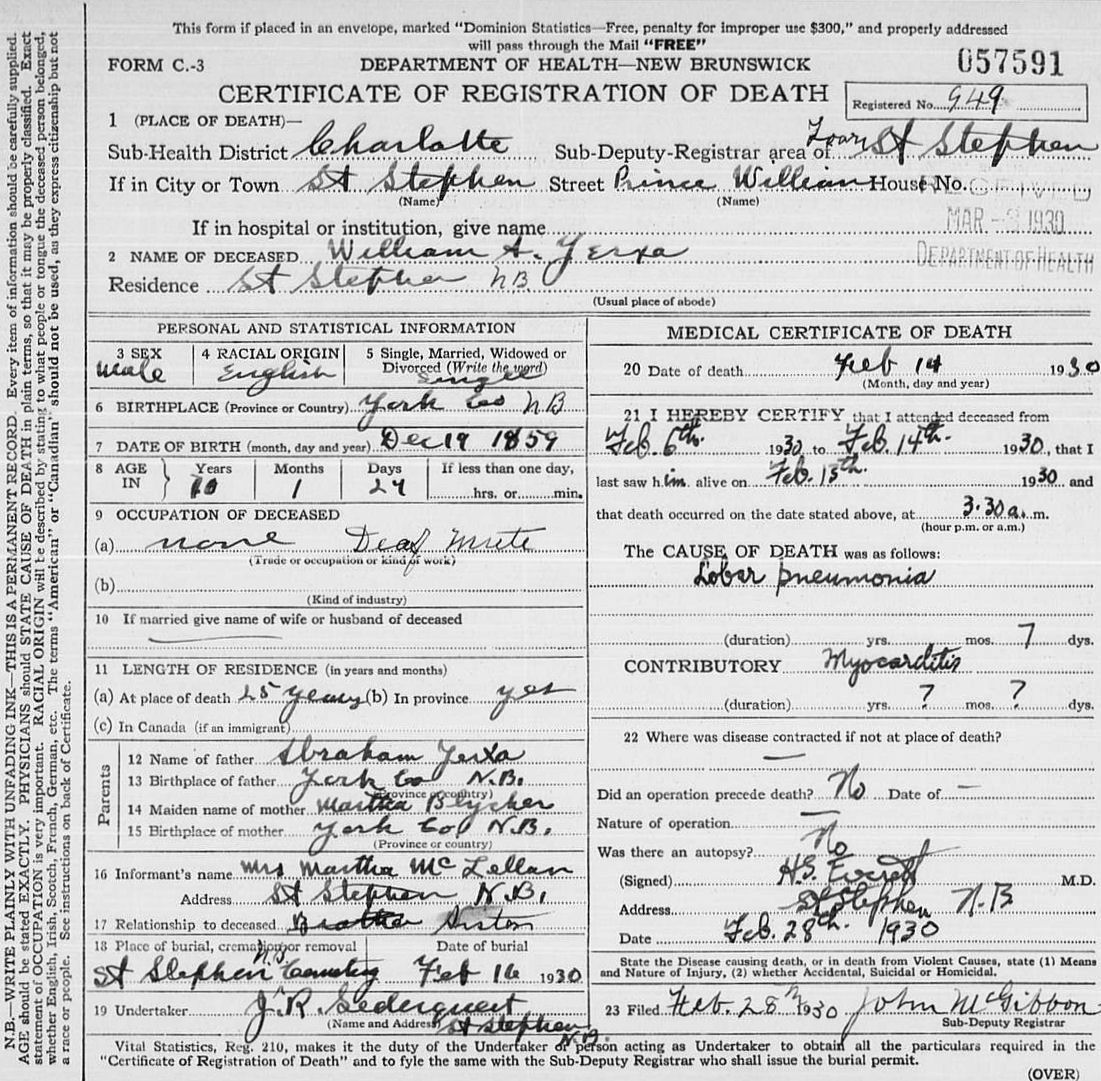 This form if placed in an envelope, marked "Dominion Statistics—Free, penalty for improper use $300," and properly addressed
will pass through the Mail "FREE"
FORM C.-3
DEPARTMENT OF HEALTH—NEW BRUNSWICK
057591
CERTIFICATE OF REGISTRATION OF DEATH
Registered No. 949
1 (PLACE OF DEATH)—
Sub-Health District Charlotte Sub-Deputy-Registrar area of Town St Stephen
If in City or Town St Stephen Street Prince William House No.
(Name) (Name)
RECEIVED
MAR - 3 1930
DEPARTMENT OF HEALTH
If in hospital or institution, give name
2 NAME OF DECEASED William A. Yerxa
Residence St Stephen N.B.
(Usual place of abode)
PERSONAL AND STATISTICAL INFORMATION
3 SEX Male
4 RACIAL ORIGIN English
5 Single, Married, Widowed or Divorced (Write the word) Single
6 BIRTHPLACE (Province or Country) York Co NB
7 DATE OF BIRTH (month, day and year) Dec 19 1859
8 AGE IN Years 70 Months 1 Days 24 If less than one day, hrs. or min.
9 OCCUPATION OF DECEASED
(a) none Deaf Mute
(Trade or occupation or kind of work)
(b)
(Kind of industry)
10 If married give name of wife or husband of deceased
11 LENGTH OF RESIDENCE (in years and months)
(a) At place of death 25 years (b) In province yes
(c) In Canada (if an immigrant)
Parents
12 Name of father Abraham Yerxa
13 Birthplace of father York Co N.B.
(Province or country)
14 Maiden name of mother Martha
15 Birthplace of mother York Co N.B.
(Province or country)
16 Informant's name Mrs Martha McLellan
Address St Stephen N.B.
17 Relationship to deceased Brother Sister
18 Place of burial, cremation or removal Date of burial
N.B.
St Stephen Cemetery Feb 16 1930
19 Undertaker J. R. Sederquest
(Name and Address) St Stephen
N.B.
MEDICAL CERTIFICATE OF DEATH
20 Date of death Feb 14 1930
(Month, day and year)
21 I HEREBY CERTIFY that I attended deceased from
Feb. 6th. 1930 to Feb. 14th. 1930, that I
last saw him alive on Feb. 13th. 1930 and
that death occurred on the date stated above, at 3.30 a.m.
(hour p.m. or a.m.)
The CAUSE OF DEATH was as follows:
Lobar pneumonia
(duration) yrs. mos. 7 dys.
CONTRIBUTORY Myocarditis
(duration) yrs. ? mos. ? dys.
22 Where was disease contracted if not at place of death?
—
Did an operation precede death? No Date of —
Nature of operation —
Was there an autopsy? No
(Signed) H.S. Everett M.D.
Address St Stephen N.B
Date Feb. 28th. 1930
State the Disease causing death, or in death from Violent Causes, state (1) Means
and Nature of Injury, (2) whether Accidental, Suicidal or Homicidal.
23 Filed Feb. 28th 1930 John McGibbon
Sub-Deputy Registrar
Vital Statistics, Reg. 210, makes it the duty of the Undertaker or person acting as Undertaker to obtain all the particulars required in the
"Certificate of Registration of Death" and to fyle the same with the Sub-Deputy Registrar who shall issue the burial permit.
(OVER)
N.B.—WRITE PLAINLY WITH UNFADING INK—THIS IS A PERMANENT RECORD. Every item of information should be carefully supplied.
AGE should be stated EXACTLY. PHYSICIANS should STATE CAUSE OF DEATH in plain terms, so that it may be properly classified. Exact
statement of OCCUPATION is very important. RACIAL ORIGIN will be described by stating to what people or tongue the deceased person belonged,
whether English, Irish, Scotch, French, German, etc. The terms "American" or "Canadian" should not be used, as they express citizenship but not
a race or people. See instructions on back of Certificate.